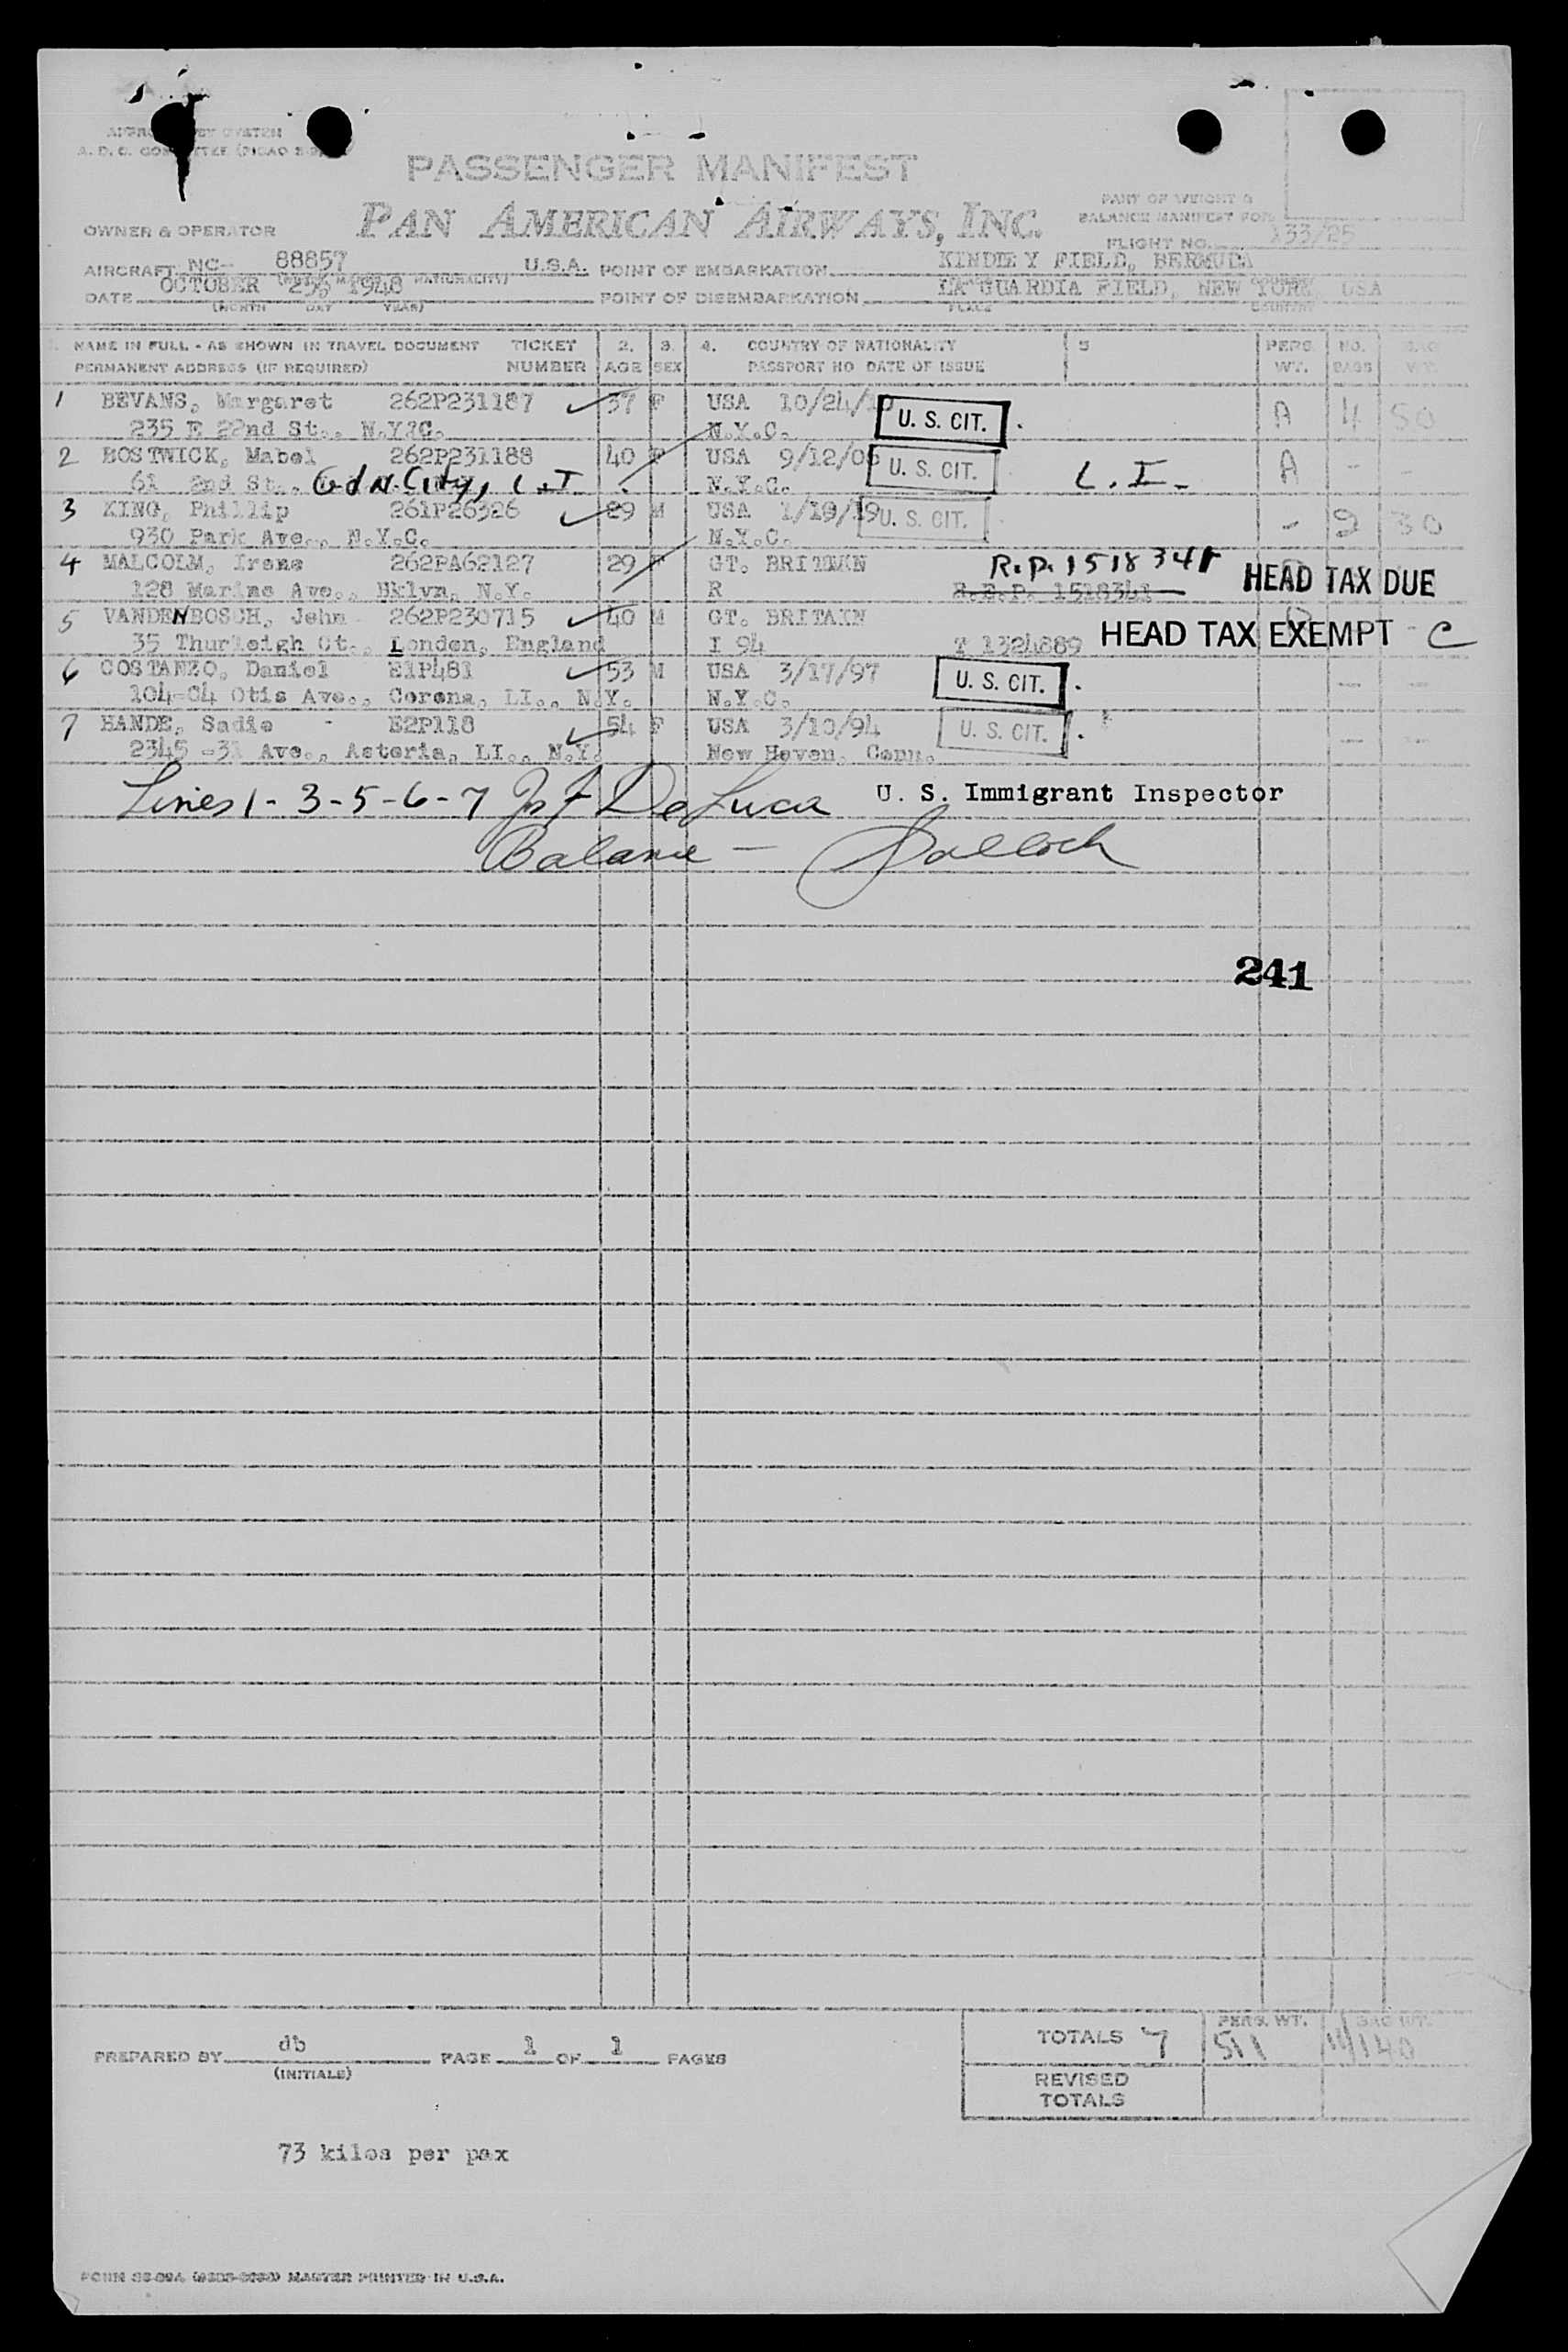 PASSENGER MANIFEST
PAN AMERICAN AIRWAYS, INC.
PART OF WEIGHT &
BALANCE MANIFEST FOR
OWNER & OPERATOR
FLIGHT NO. 133/25
AIRCRAFT NC- 88857 U.S.A. POINT OF EMBARKATION KINDLEY FIELD, BERMUDA
DATE OCTOBER 1948 POINT OF DISEMBARKATION LA GUARDIA FIELD, NEW YORK, USA
(MONTH DAY YEAR) PLACE COUNTRY
NAME IN FULL - AS SHOWN IN TRAVEL DOCUMENT TICKET 2. 3. 4. COUNTRY OF NATIONALITY 5 PERS. NO. BAG
PERMANENT ADDRESS (IF REQUIRED) NUMBER AGE SEX PASSPORT NO DATE OF ISSUE WT. BAGS WT.
1 BEVANS, Margaret 262P231187 37 F USA 10/24/ U. S. CIT. A 4 50
235 E 22nd St., N.Y.C. N.Y.C.
2 BOSTWICK, Mabel 262P231188 40 F USA 9/12/08 U. S. CIT. L.I. A - -
61 2nd St., Gdn. City, L.I. N.Y.C.
3 KING, Phillip 261P26326 29 M USA 1/19/19 U. S. CIT. - 2 30
930 Park Ave., N.Y.C. N.Y.C.
4 MALCOLM, Irene 262PA62127 29 F GT. BRITAIN R.P. 1518341 HEAD TAX DUE
128 Marine Ave., Bklyn, N.Y. R R.E.P. 1518341
5 VANDENBOSCH, John 262P230715 40 M GT. BRITAIN HEAD TAX EXEMPT - C
35 Thurleigh Ct., London, England I 94 T 1324889
6 COSTANZO, Daniel E1P481 53 M USA 3/17/97 U. S. CIT. - -
104-04 Otis Ave., Corona, LI., N.Y. N.Y.C.
7 HANDE, Sadie E2P118 54 F USA 3/10/94 U. S. CIT. - -
2345 -31 Ave., Astoria, LI., N.Y. New Haven, Conn.
Lines 1-3-5-6-7 Jos F DeLuca U. S. Immigrant Inspector
Balance -
241
TOTALS 7 PERS. WT. 511 BAG WT. 11/140
PREPARED BY db PAGE 1 OF 1 PAGES
(INITIALS)
REVISED
TOTALS
73 kilos per pax
MASTER PRINTED IN U.S.A.